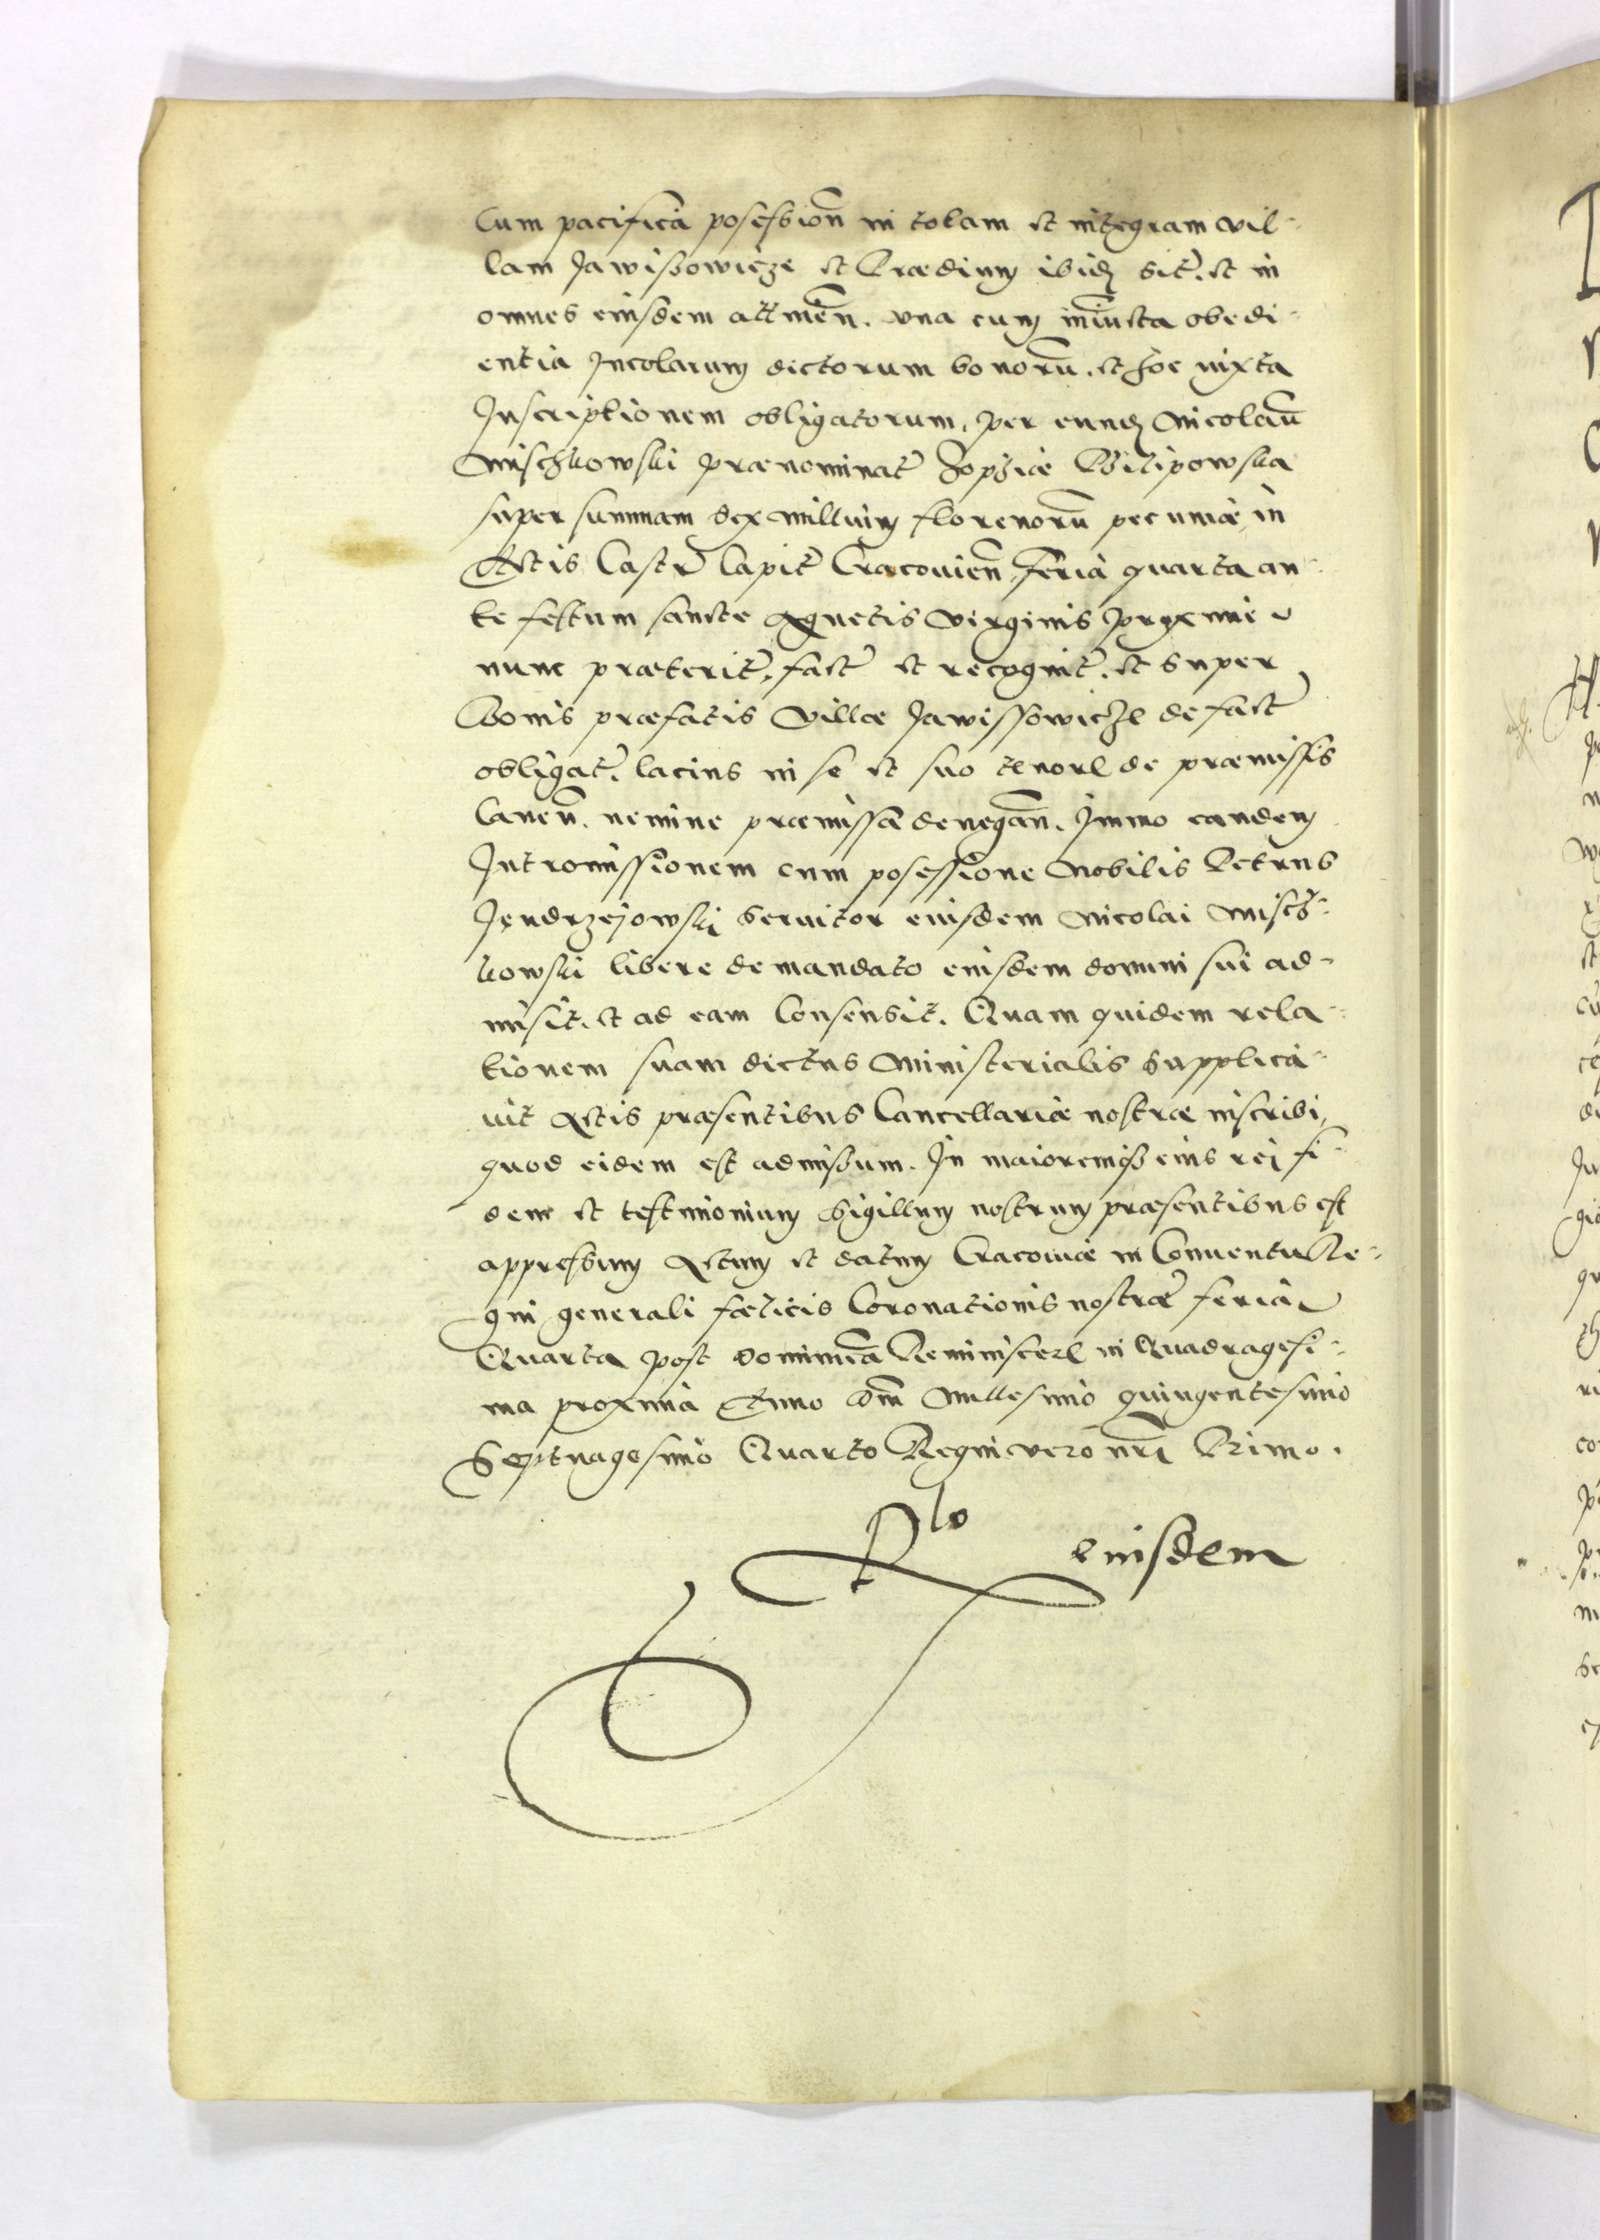 Cum pacifica possession in totam et integram vil-
lam Jawissowicze et Prædium ibid sit. et in
omnes eiusdem attinen. vna cum iniuncta obedi-
entia Incolarum dictorum bonorū. et hoc iuxta
Inscriptionem obligatorum, per eund Nicolaū
Mischkowski prænominat Zophiæ Philipowska
super summam sex millium florenorū pecuniæ in
Actis Castr Capit Cracouien, feria quarta an-
te festum sancte Agnetis Virginis proxime
nunc præterit, fact et recognit. et super
Bonis præfatis Villæ Jawissowicze de fact
obligat. lacius in se et suo tenore de præmissis
Canen. nemine præmissa denegan. Immo eandem
Intromissionem cum posessione Nobilis Petrus
Jendrzejowski seruitor eiusdem Nicolai Misch-
kowski libere de mandato eiusdem domini sui ad-
misit. et ad eam Consensit. Quam quidem rela-
tionem suam dictus Ministerialis supplica-
uit Actis præsentibus Cancellariæ nostræ inscribi,
quod eidem est admissum. In maioremqz eius rei fi-
dem et testimonium Sigillum nostrum præsentibus est
appressum Actum et datum Cracouiæ in Conuentu Re-
gni generali fœlicis Coronationis nostræ feria
Quarta post dominicā Reminiscere in Quadragesi-
ma proxima Anno Dni Millesimo quingentesimo
Septuagesimo Quarto Regni vero nri Primo.
Rlo eiusdem